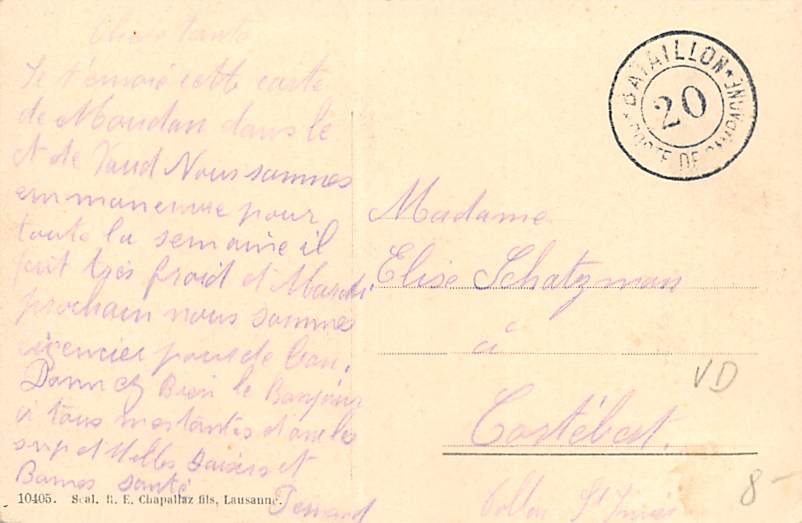 Chère Tante
Je t'envoie cette carte
de Moudon dans le
Ct de Vaud Nous sommes
en maneuvre pour
toute la semaine il
fait très froid et Mardi
prochain nous sommes
licencier pour de bon.
Donnez Bien le Bonjour
à tous mes tantes et oncles
et Belles baisers et
Bonnes santé
Fernand
10405. Scal. R. E. Chapallaz fils, Lausanne.
BATAILLON
20
POSTE DE CAMPAGNE
Madame
Elise Schatzman
à
Cortébert.
Vallon St Imier
VD
8-